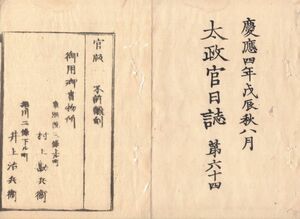 慶應四年戊辰秋八月
太政官日誌 第六十四
官版 不許飜刻
御用御書物所
村上勘兵衛
堀川二條下ル町
井上治兵衛